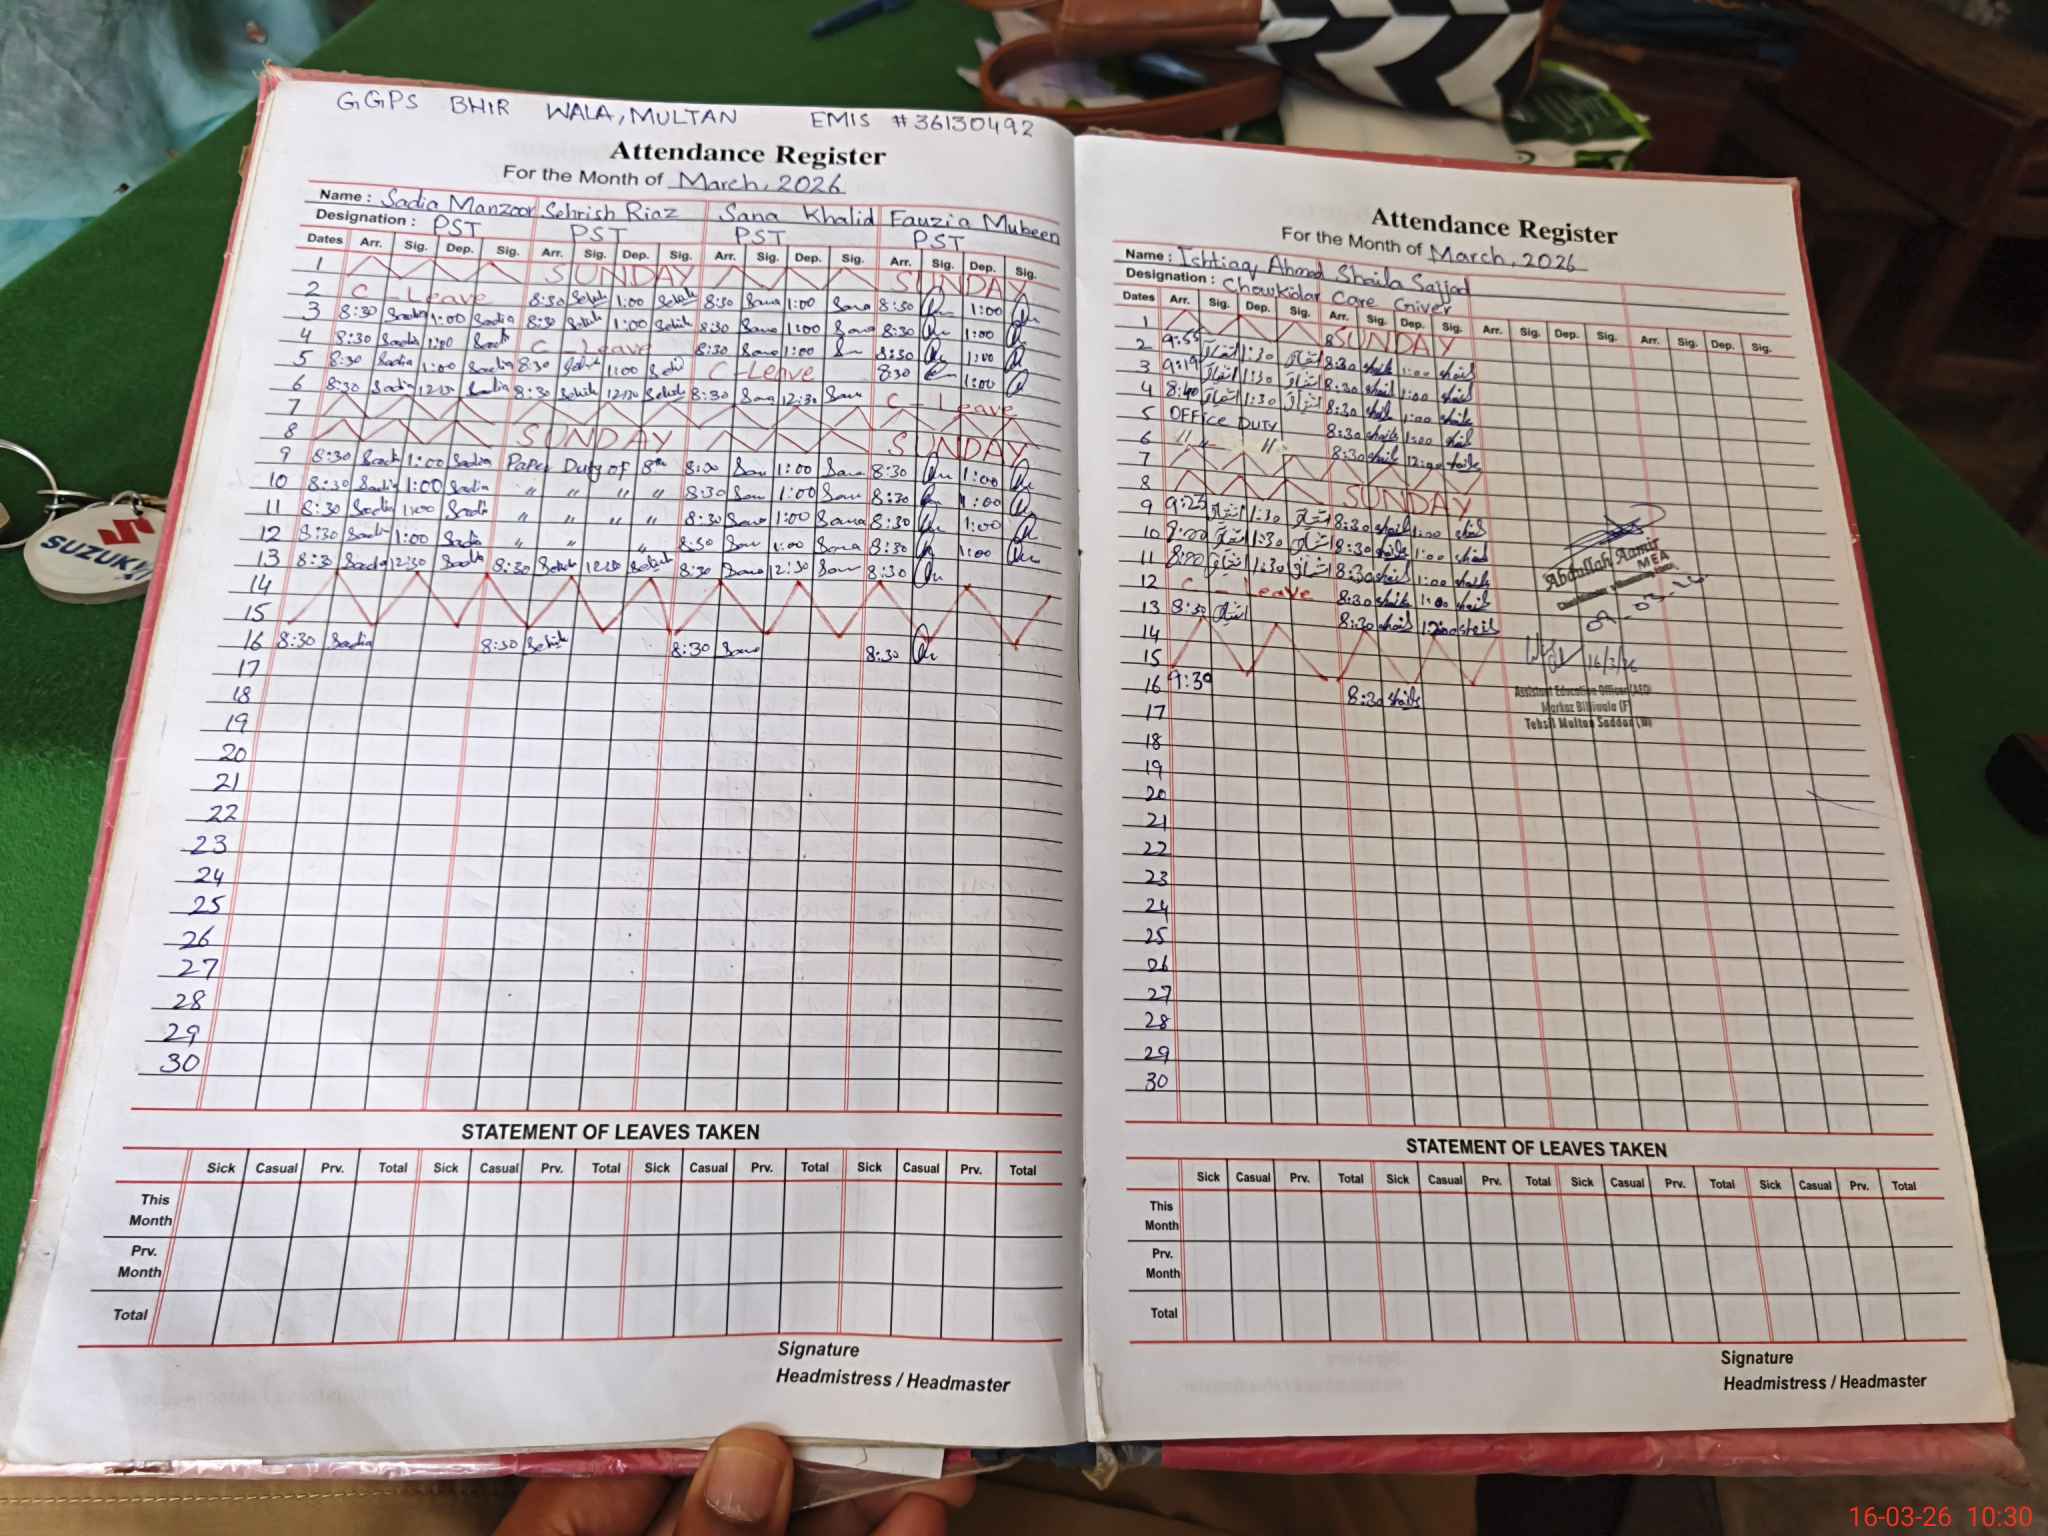 GGPS BHIR WALA, MULTAN EMIS #36130492
Attendance Register
For the Month of March, 2026
Name : Sadia Manzoor Sehrish Riaz Sana Khalid Fauzia Mubeen
Designation : PST PST PST PST
Dates Arr. Sig. Dep. Sig. Arr. Sig. Dep. Sig. Arr. Sig. Dep. Sig. Arr. Sig. Dep. Sig.
1 SUNDAY SUNDAY
2 C-Leave 8:30 Sehrish 1:00 Sehrish 8:30 Sana 1:00 Sana 8:30 1:00
3 8:30 Sadia 1:00 Sadia 8:30 Sehrish 1:00 Sehrish 8:30 Sana 1:00 Sana 8:30 1:00
4 8:30 Sadia 1:00 Sadia C-Leave 8:30 Sana 1:00 8:30 1:00
5 8:30 Sadia 1:00 Sadia 8:30 Sehrish 1:00 C-Leave 8:30 1:00
6 8:30 Sadia 12:30 Sadia 8:30 Sehrish 12:30 Sehrish 8:30 Sana 12:30 Sana C-Leave
7
8 SUNDAY SUNDAY
9 8:30 Sadia 1:00 Sadia Paper Duty of 8th 8:30 Sana 1:00 Sana 8:30 1:00
10 8:30 Sadia 1:00 Sadia " " " " 8:30 Sana 1:00 Sana 8:30 1:00
11 8:30 Sadia 1:00 Sadia " " " " 8:30 Sana 1:00 Sana 8:30 1:00
12 8:30 Sadia 1:00 Sadia " " " 8:30 Sana 1:00 Sana 8:30 1:00
13 8:30 Sadia 12:30 Sadia 8:30 Sehrish 12:30 Sehrish 8:30 Sana 12:30 Sana 8:30
14
15
16 8:30 Sadia 8:30 Sehrish 8:30 Sana 8:30
17
18
19
20
21
22
23
24
25
26
27
28
29
30
STATEMENT OF LEAVES TAKEN
Sick Casual Prv. Total Sick Casual Prv. Total Sick Casual Prv. Total Sick Casual Prv. Total
This Month
Prv. Month
Total
Signature
Headmistress / Headmaster
Attendance Register
For the Month of March, 2026
Name : Ishtiaq Ahmad Shaila Sajjad
Designation : Chowkidar Care Giver
Dates Arr. Sig. Dep. Sig. Arr. Sig. Dep. Sig. Arr. Sig. Dep. Sig. Arr. Sig. Dep. Sig.
1 SUNDAY
2 9:55 اشتیاق 1:30 اشتیاق 8:30 Shaila 1:00 Shaila
3 9:19 اشتیاق 1:30 اشتیاق 8:30 Shaila 1:00 Shaila
4 8:40 اشتیاق 1:30 اشتیاق 8:30 Shaila 1:00 Shaila
5 OFFICE DUTY 8:30 Shaila 1:00 Shaila
6 " " " 8:30 Shaila 12:00 Shaila
7
8 SUNDAY
9 9:25 اشتیاق 1:30 اشتیاق 8:30 Shaila 1:00 Shaila
10 8:00 اشتیاق 1:30 اشتیاق 8:30 Shaila 1:00 Shaila
11 8:00 اشتیاق 1:30 اشتیاق 8:30 Shaila 1:00 Shaila
12 C-Leave 8:30 Shaila 1:00 Shaila
13 8:30 اشتیاق 8:30 Shaila Shaila
14
15
16 9:30 8:30 Shaila
17
18
19
20
21
22
23
24
25
26
27
28
29
30
Abdullah Aamir
MEA
09-03-26
16/3/26
Assistant Education Officer (AEO)
Markaz Billiwala (F)
Tehsil Multan Saddar (W)
STATEMENT OF LEAVES TAKEN
Sick Casual Prv. Total Sick Casual Prv. Total Sick Casual Prv. Total Sick Casual Prv. Total
This Month
Prv. Month
Total
Signature
Headmistress / Headmaster
SUZUKI
16-03-26 10:30